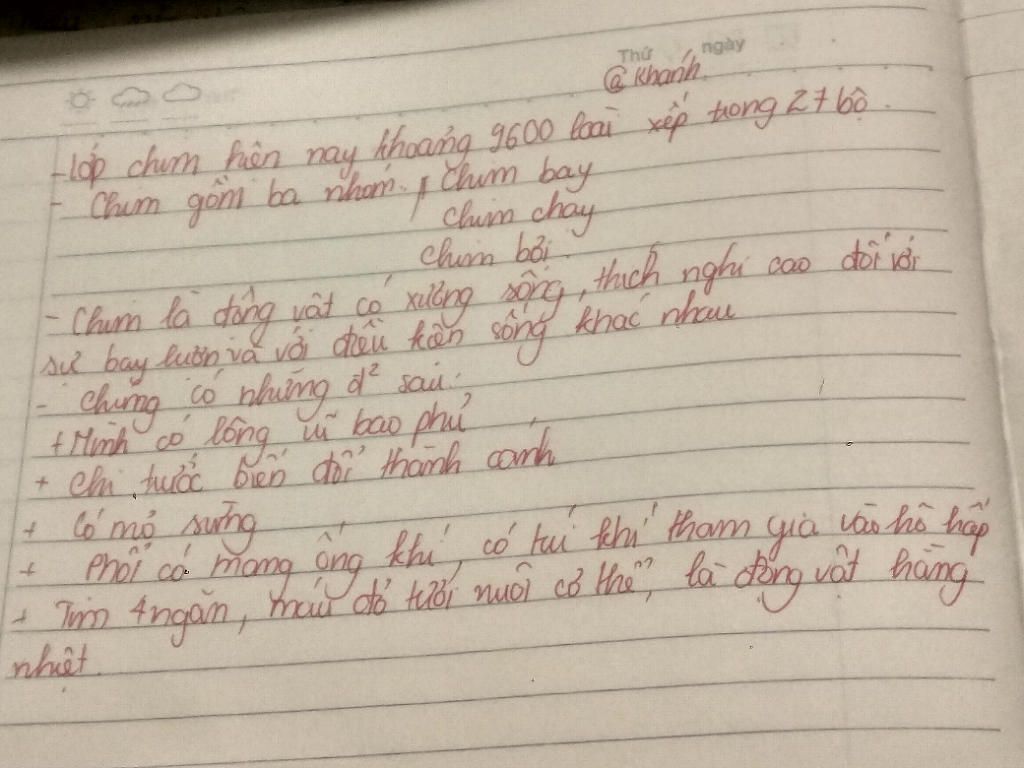 Thứ ngày
@Khanh
- Lớp chim hiện nay khoảng 9600 loài xếp trong 27 bộ.
- Chim gồm ba nhóm: Chim bay
chim chạy
chim bơi.
- Chim là động vật có xương sống, thích nghi cao đối với
sự bay lượn và với điều kiện sống khác nhau
- Chúng có những đ² sau:
+ Mình có lông vũ bao phủ
+ Chi trước biến đổi thành cánh
+ Có mỏ sừng
+ Phổi có mang ống khí, có túi khí tham gia vào hô hấp
+ Tim 4 ngăn, máu đỏ tươi nuôi cơ thể, là động vật hằng
nhiệt.